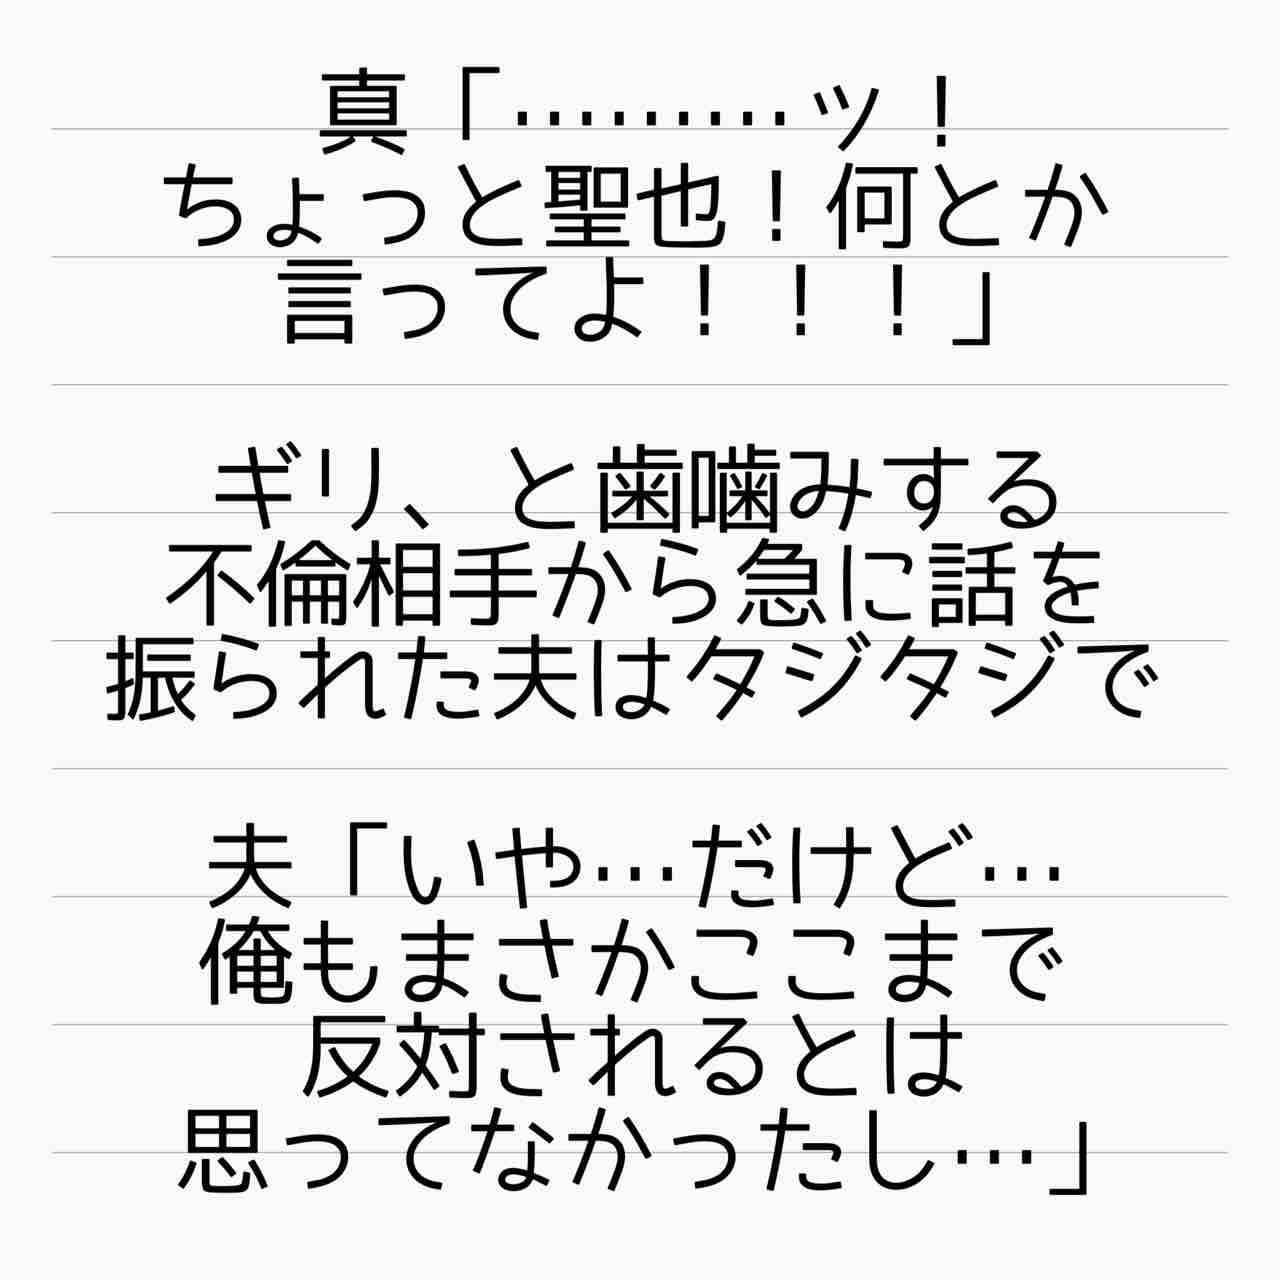 真「………ッ！
ちょっと聖也！何とか
言ってよ！！！」
ギリ、と歯噛みする
不倫相手から急に話を
振られた夫はタジタジで
夫「いや…だけど…
俺もまさかここまで
反対されるとは
思ってなかったし…」